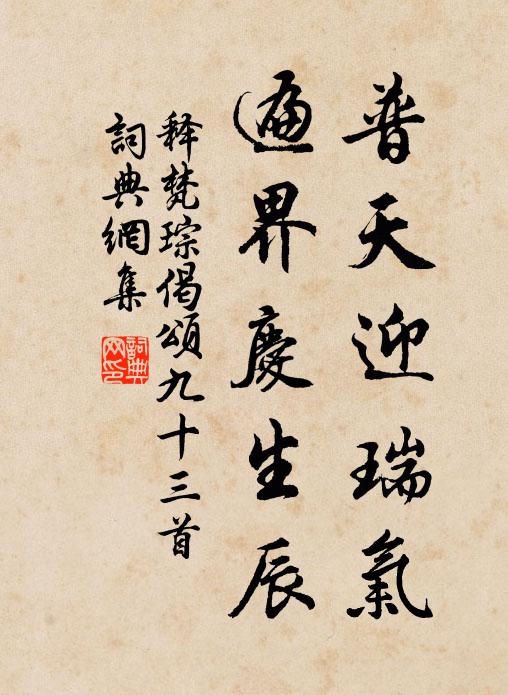 普天迎瑞氣
遍界慶生辰
释梵琮偈頌九十三首
詞典網集
詞典
网印